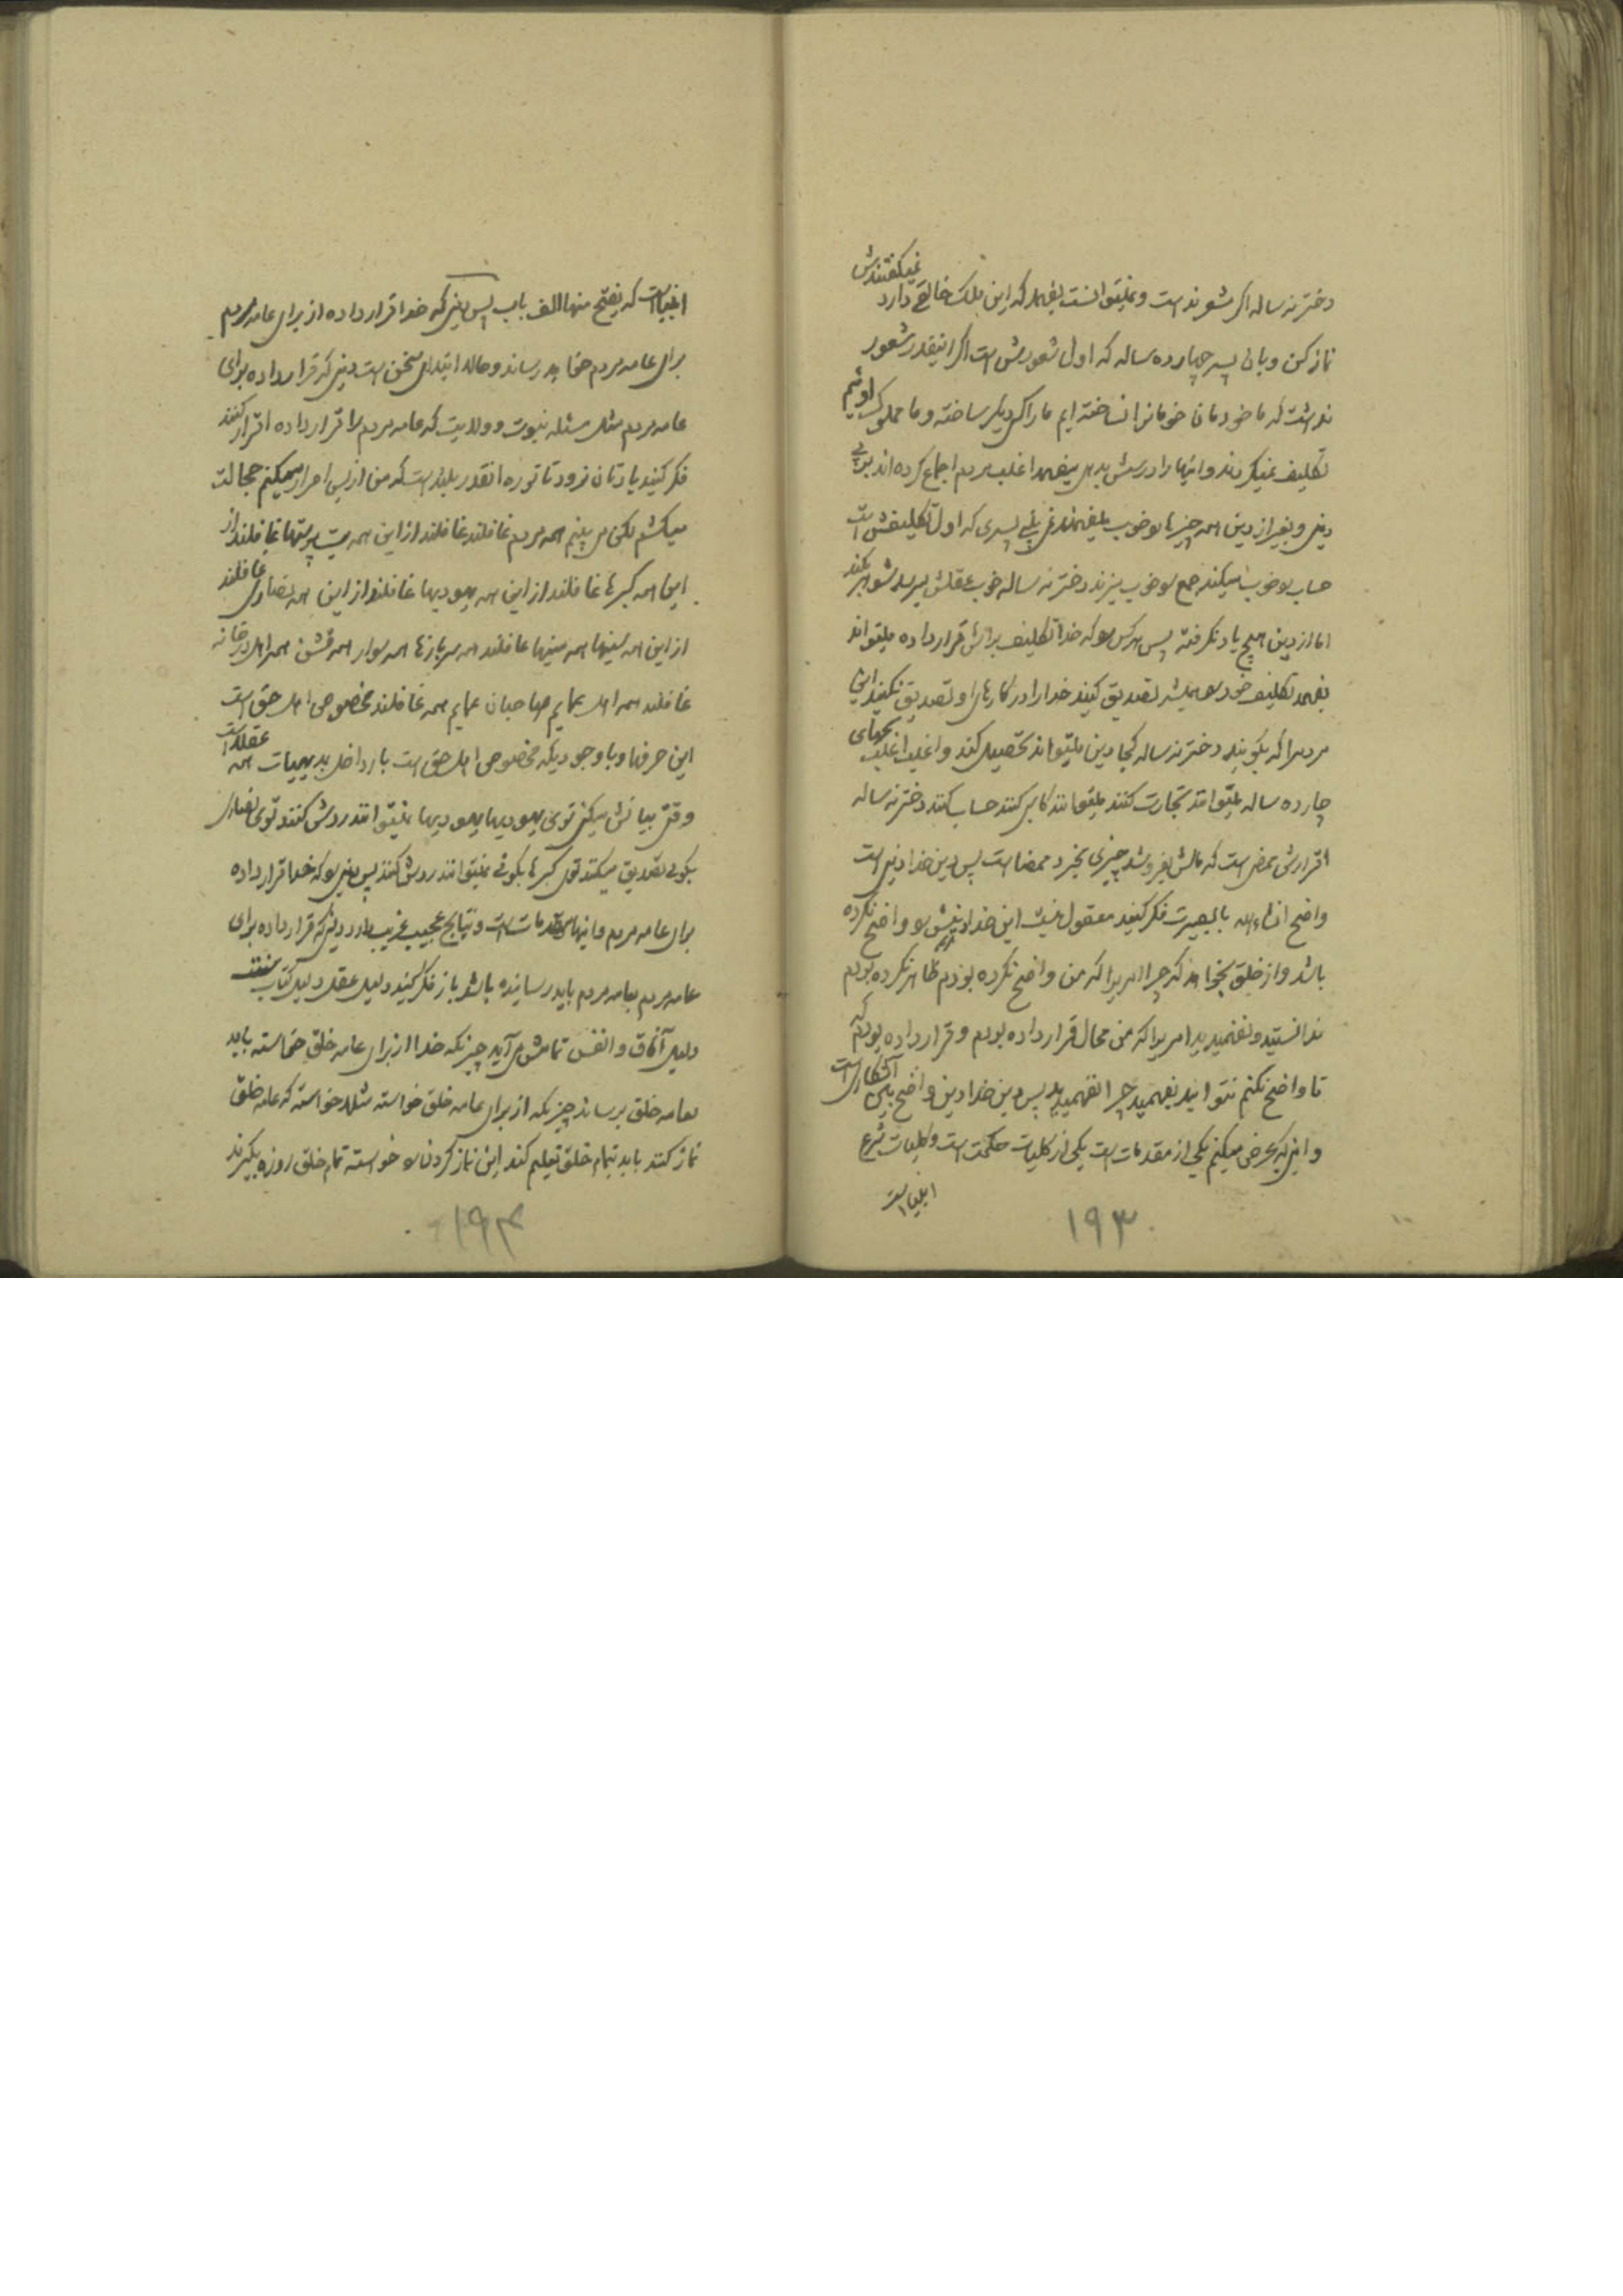 دختر نه ساله اگر شعور نداشت و نمیتوانست بفهمد که این ملک خالقی دارد نمیگفتندش
نماز کن و بآن پسر چهارده ساله که اول شعورش است اگر اینقدر شعور
نداشت که ما خودمان خودمانرا نساخته ایم ما را کس دیگر ساخته و ما مملوک اوئیم
تکلیف نمیکردند و اینها را درستش بدهی میفهمد اغلب مردم اجماع کرده اند بر بی
دینی و بغیر از دین همه چیزها را خوب میفهمند پسری که اول تکلیفش است
حساب را خوب میکند جمع را خوب میزند دختر نه ساله خوب عقلش میرسد شوهر بکند
اما از دین هیچ یاد نگرفته پس هرکس را که خدا تکلیف برایش قرار داده میتواند
بفهمد تکلیف خود را همیشه تصدیق کنید خدا را در کارهای او تصدیق نکنید این
مردم را که بگویند دختر نه ساله کجا دین میتواند تحصیل کند و اغلب اغلب بچهای
چارده ساله میتوانند تجارت کنند میتوانند کاسبی کنند حساب کنند دختر نه ساله
اقرارش ممضی است که مالش بفروشد چیزی بخرد ممضا است پس دین خدا دینی است
واضح انشاء الله با بصیرت فکر کنید معقول نیست این خدا دینش را واضح نکرده
باشد و از خلق بخواهد که چرا امریرا که من واضح نکرده بودم ظاهر نکرده بودم
ندانستید و نفهمیدید امریرا که من محال قرار داده بودم و قرار داده بودم که
تا واضح نکنم نتوانید بفهمید چرا نفهمیدید پس دین خدا دین واضح بیّن آشکاری است
و اینی که عرض میکنم یکی از مقدمات است یکی از کلیات حکمت است و کلیات شرع
انبیاست
۱۹۳
انبیاست که یفتح منها الف باب پس دینی که خدا قرار داده از برای عامه مردم
برای عامه مردم خواهد رساند و حالا ابتدای سخن است دینی که قرار داده برای
عامه مردم مثل مسئله نبوت و ولایت که عامه مردم را قرار داده اقرار کنند
فکر کنید یادتان نرود تا توره انقدر بلید است که من از بس اصرار میکنم خجالت
میکشم لکن می بینم همه مردم غافلند غافلند از این همه بت پرستها غافلند از
این همه گبرها غافلند از این همه یهودیها غافلند از این همه نصاری غافلند
از این همه سنیها همه سنیها غافلند همه سربازها همه سوار همه قشون همه اهل درخانه
غافلند همه اهل عمایم صاحبان عمایم همه غافلند مخصوص اهل حق است
این حرفها و با وجودیکه مخصوص اهل حق است باز داخل بدیهیات همه عقلا است
وقتی بیانش میکنی توی یهودیها یهودیها نمیتوانند ردش کنند توی نصاری
بگوئی تصدیق میکنند توی گبرها بگوئی نمیتوانند ردش کنند پس دینی را که خدا قرار داده
برای عامه مردم و اینها مقدمات است و نتایج عجیب غریب دارد دینی که قرار داده برای
عامه مردم بعامه مردم باید رسانده باشد باز فکر کنید دلیل عقل دلیل کتاب سنت
دلیل آفاق و انفس تمامش می آید چیزیکه خدا از برای عامه خلق خواسته باید
بعامه خلق برساند چیزیکه از برای عامه خلق خواسته مثلا خواسته که عامه خلق
نماز کنند باید بتمام خلق تعلیم کند این نماز کردن را خواسته تمام خلق روزه بگیرند
۱۹۴